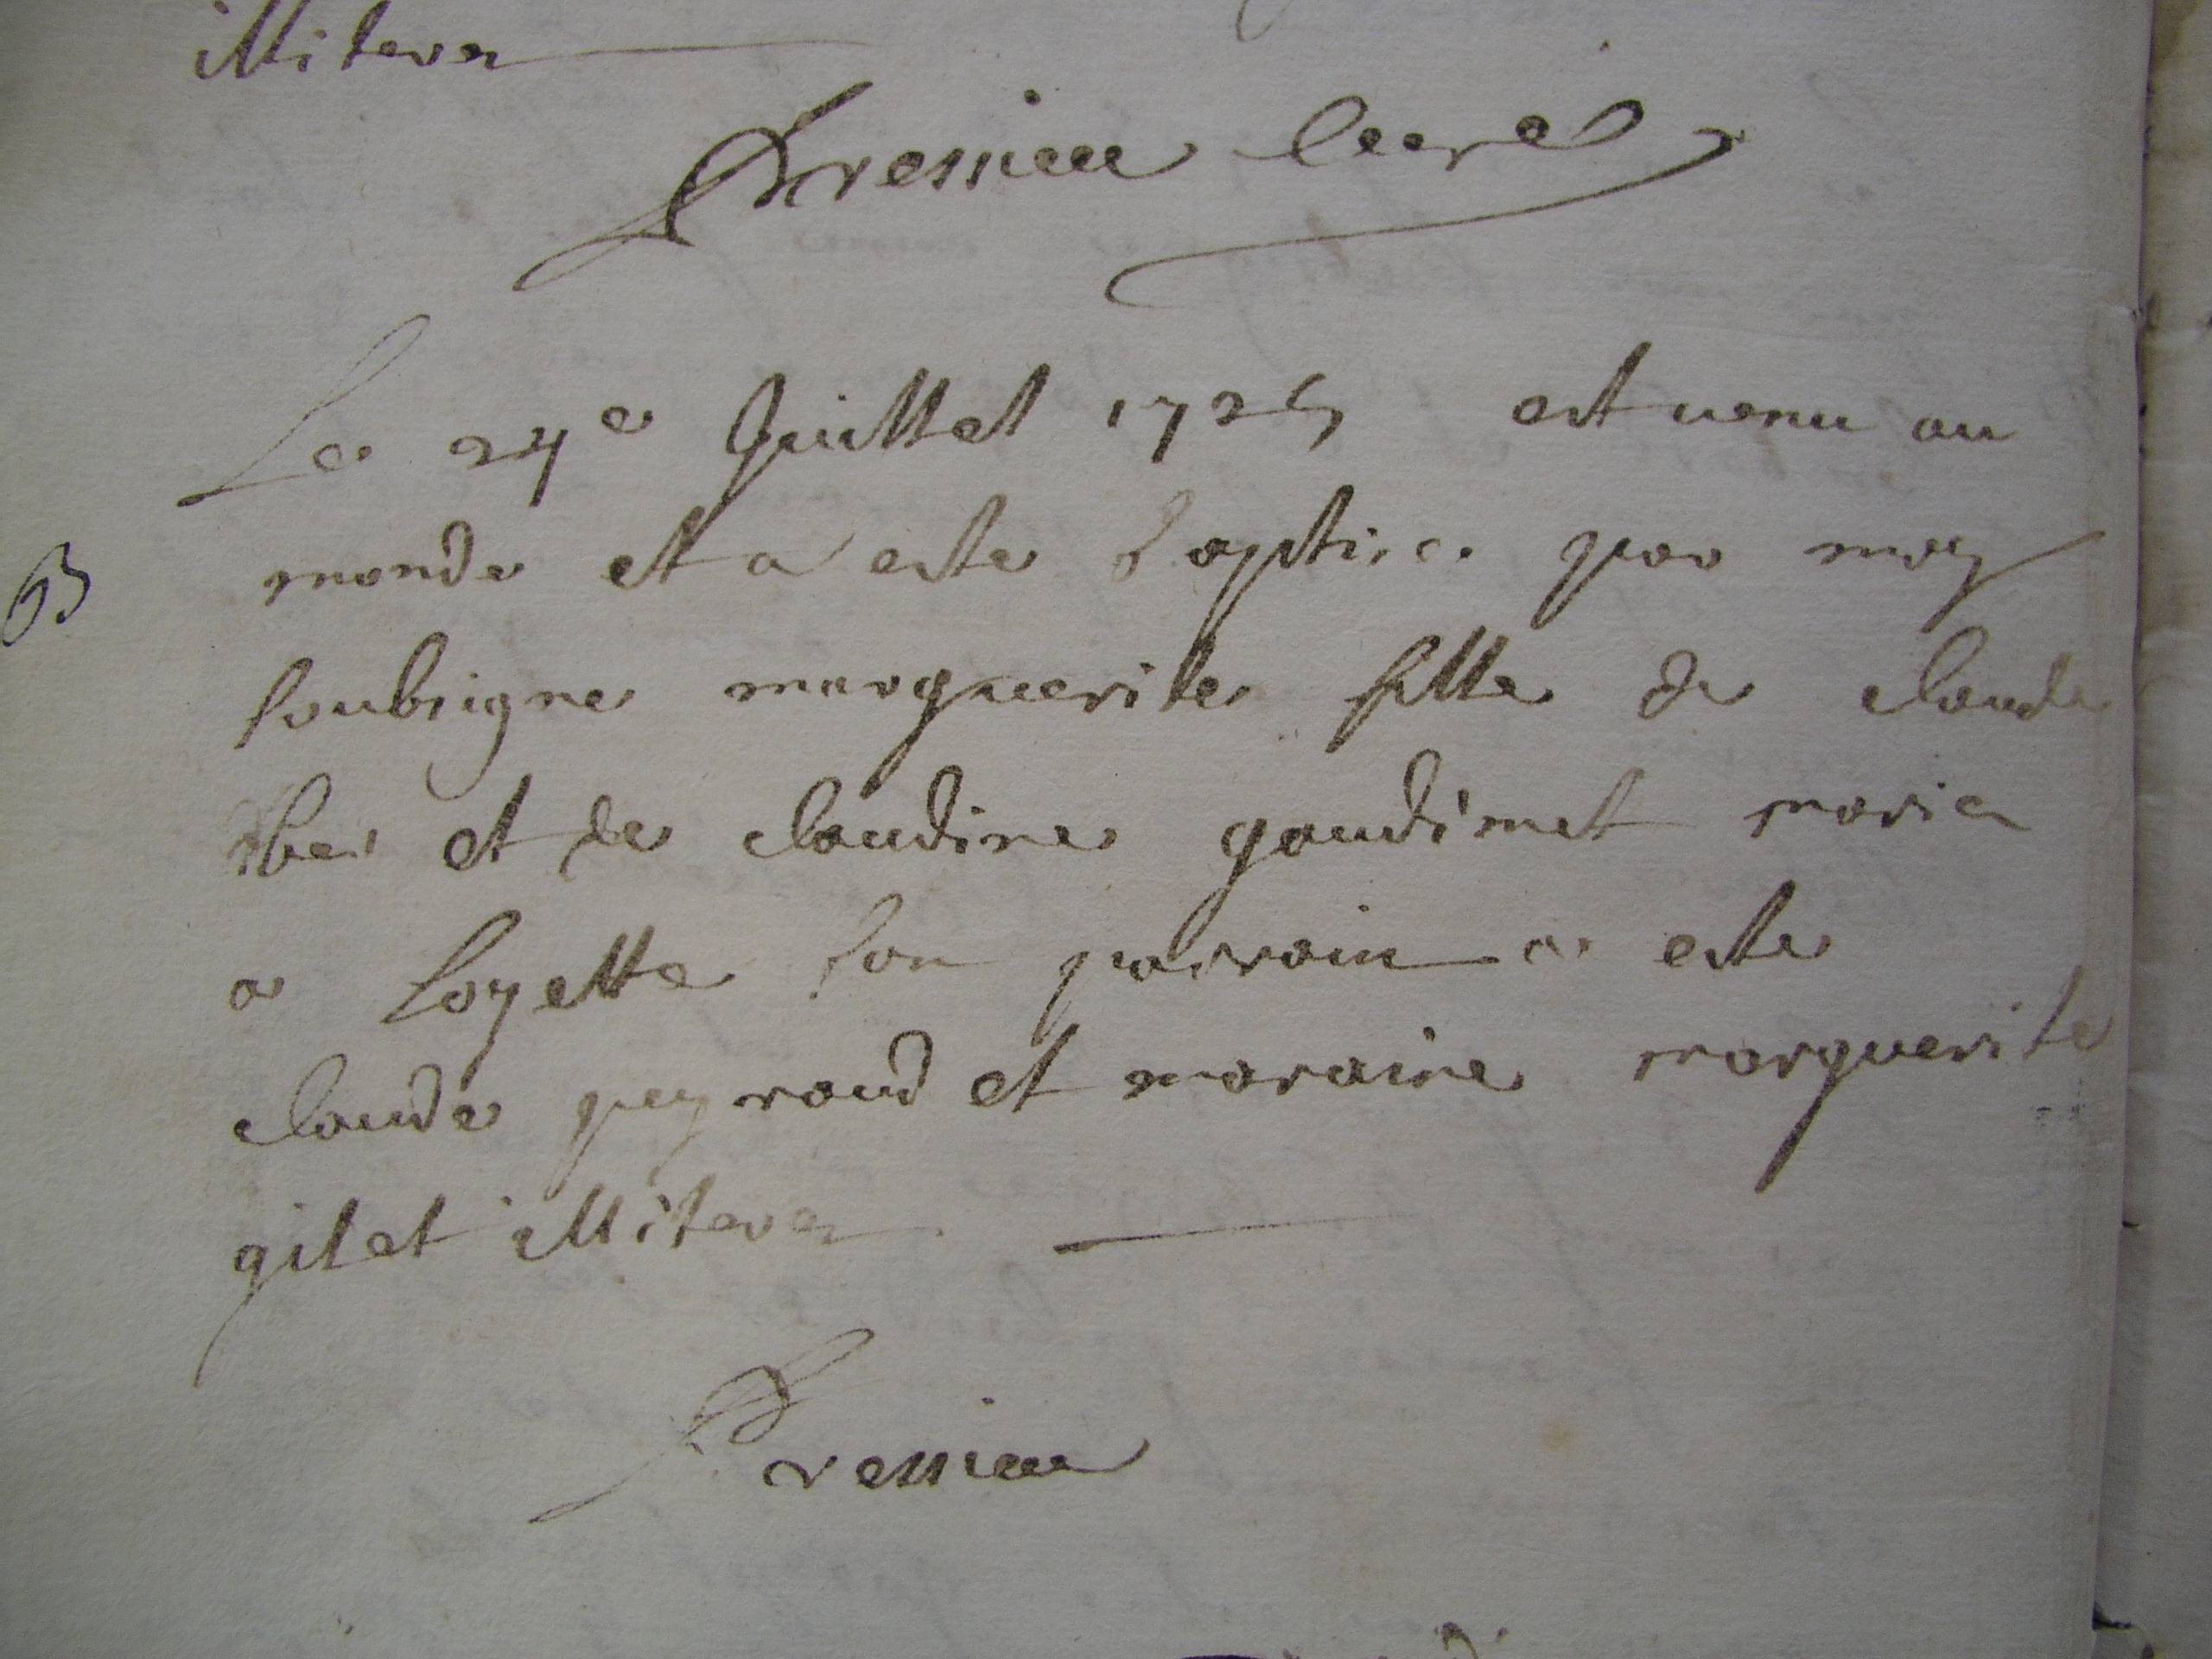 illiteres
Bressieu curé
Le 24e Juillet 1725 est venu au
monde et a este baptise par moy
soubsigne marguerite fille de claude
et de claudine gaudimet maries
a Loyette son parrain a este
claude peyraud et maraine marguerite
gilet illiteres
Bressieu